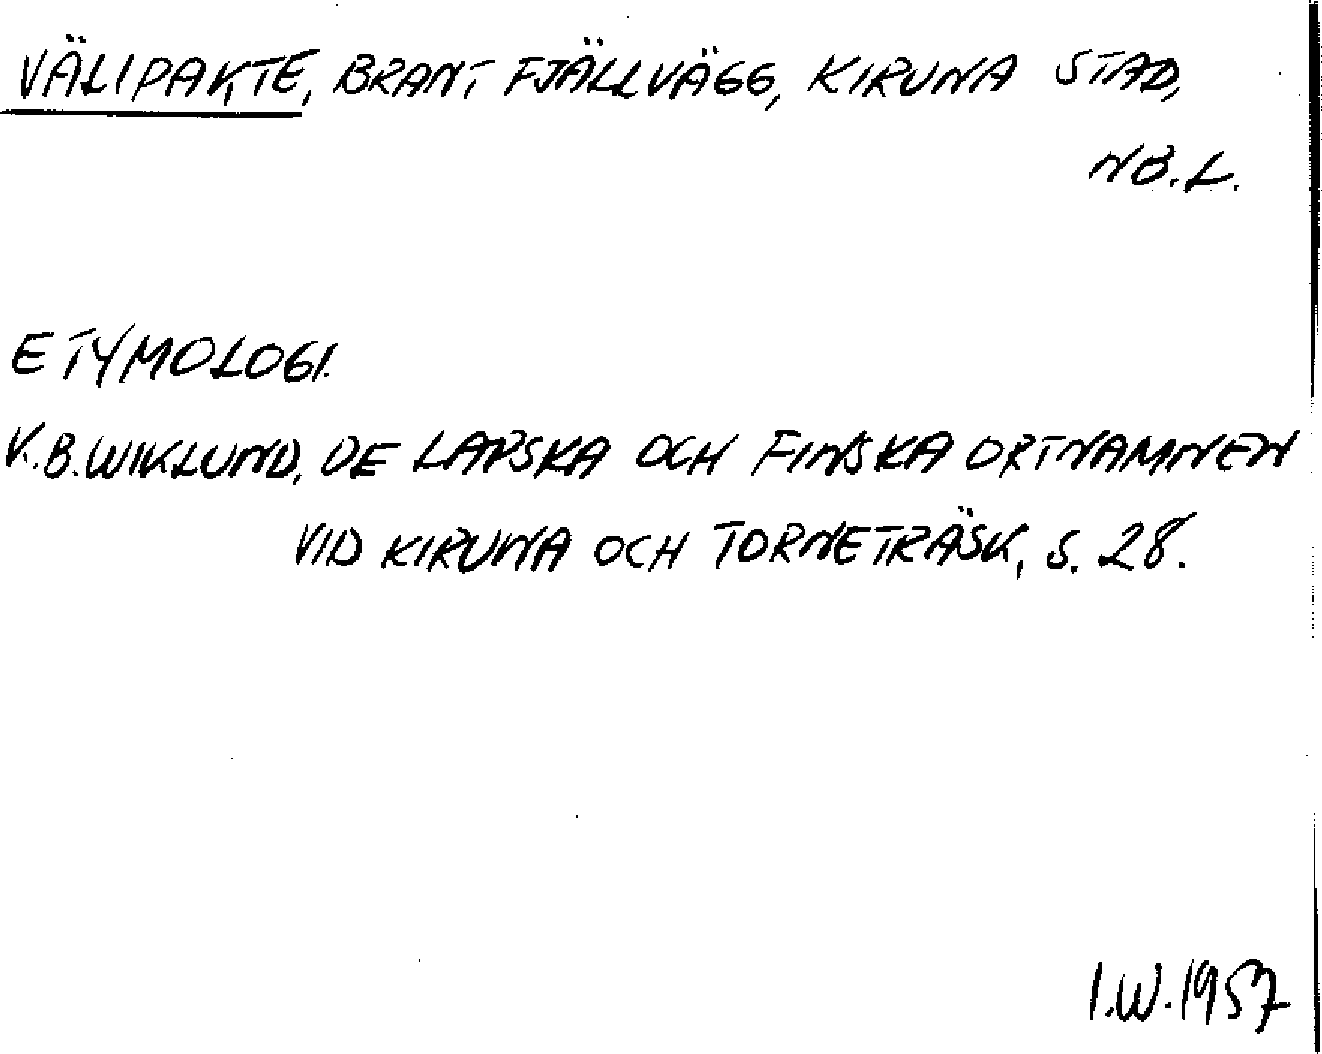 VÄLIPAKTE, BRANT FJÄLLVÄGG, KIRUNA STAD,
NB.L.
ETYMOLOGI.
K.B.WIKLUND, DE LAPSKA OCH FINSKA ORTNAMNEN
VID KIRUNA OCH TORNETRÄSK, S. 28.
I.W. 1957